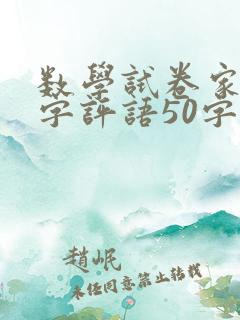 数學試卷家
字評語50字
趙岷
未经同意禁止转载